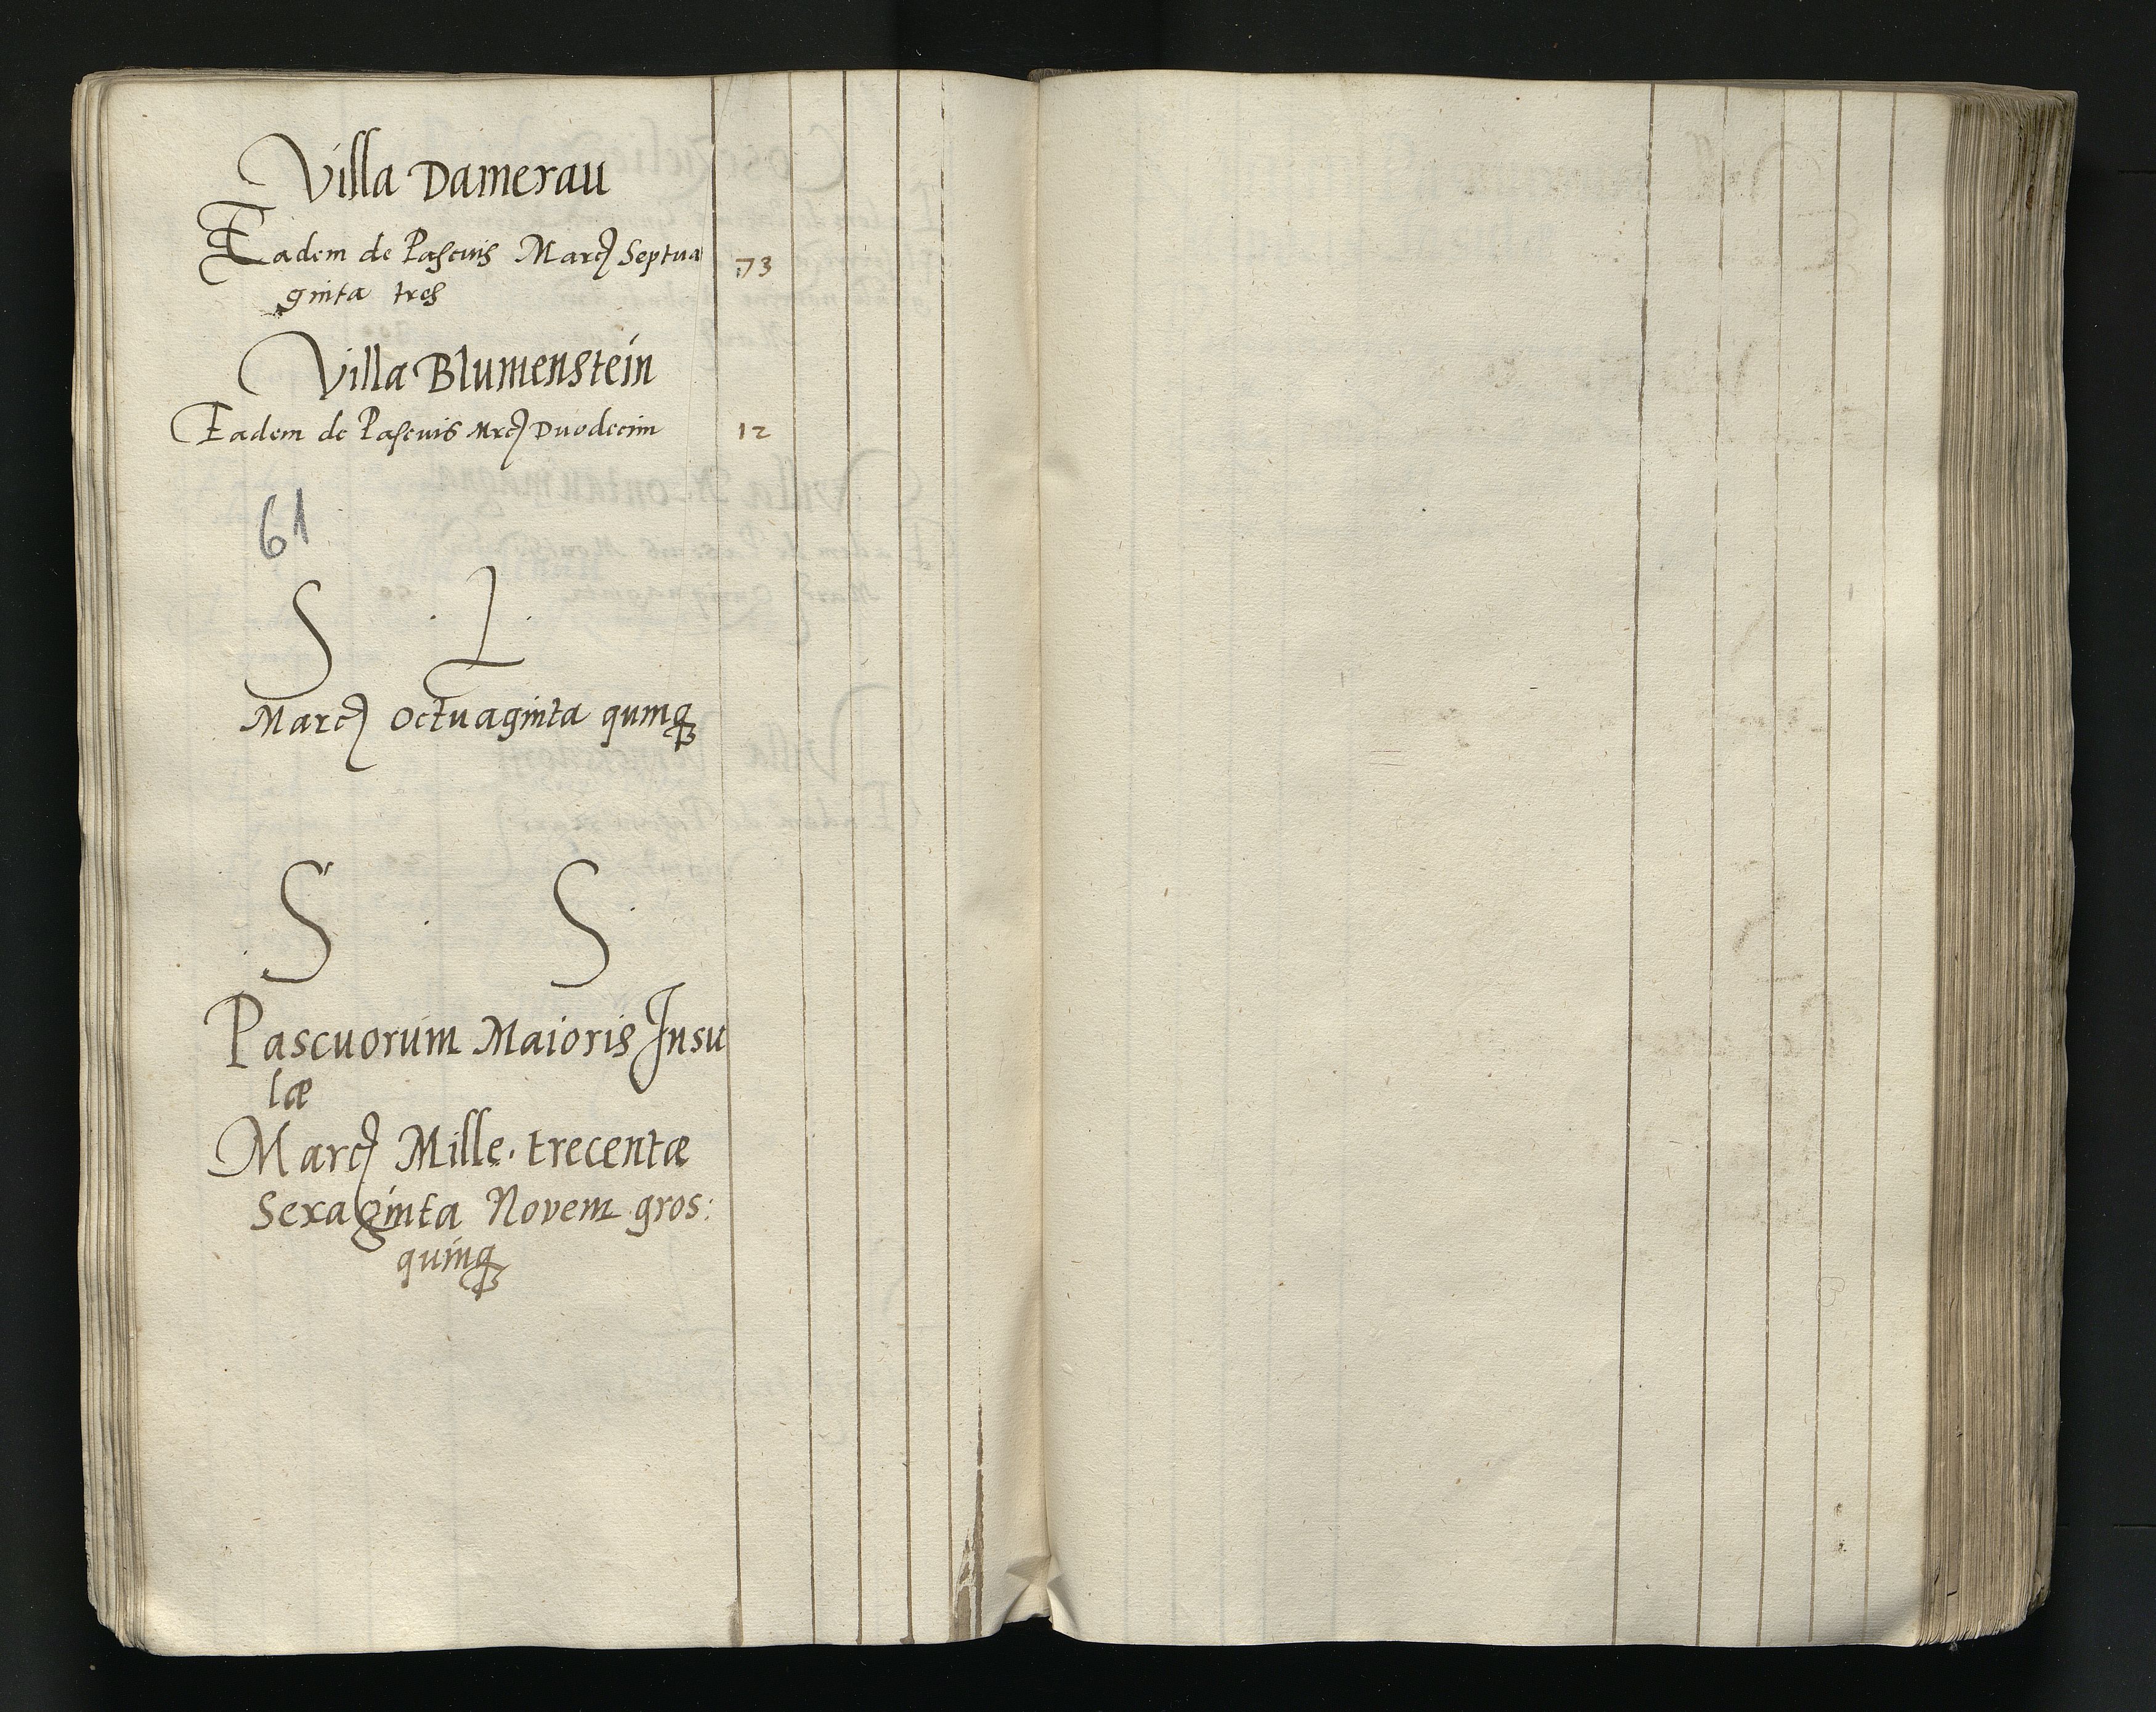 Villa Damerau
Eadem de Pascuis Marcȝ Septua 73
ginta tres
Villa Blumenstein
Eadem de Pascuis Mrcȝ Duodecim 12
61
S . L .
Marcȝ octuaginta quinqȝ
S . S .
Pascuorum Maioris Insu
læ
Marcȝ Mille. trecentæ
Sexaginta Novem gros:
quinqȝ